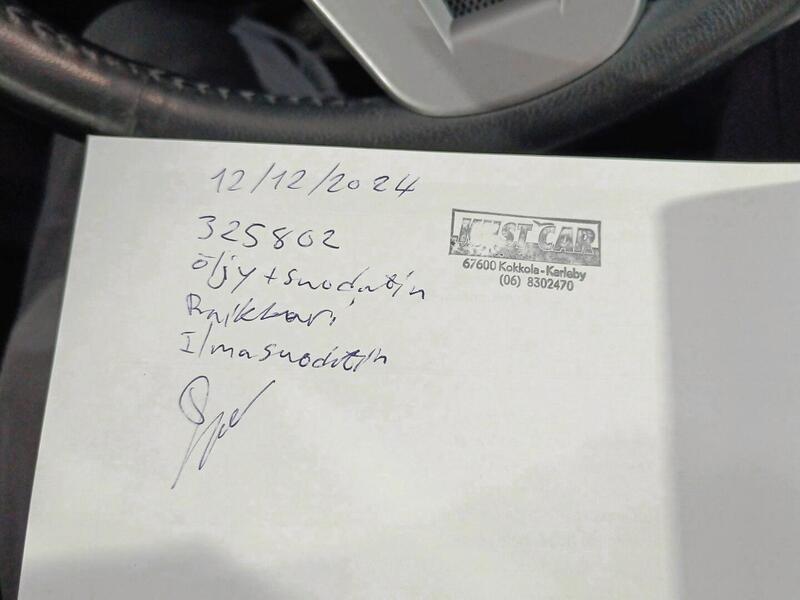 12/12/2024
325802
Öljy + suodatin
Ilmasuodatin
CAR
67600 Kokkola-Karleby
(06) 8302470